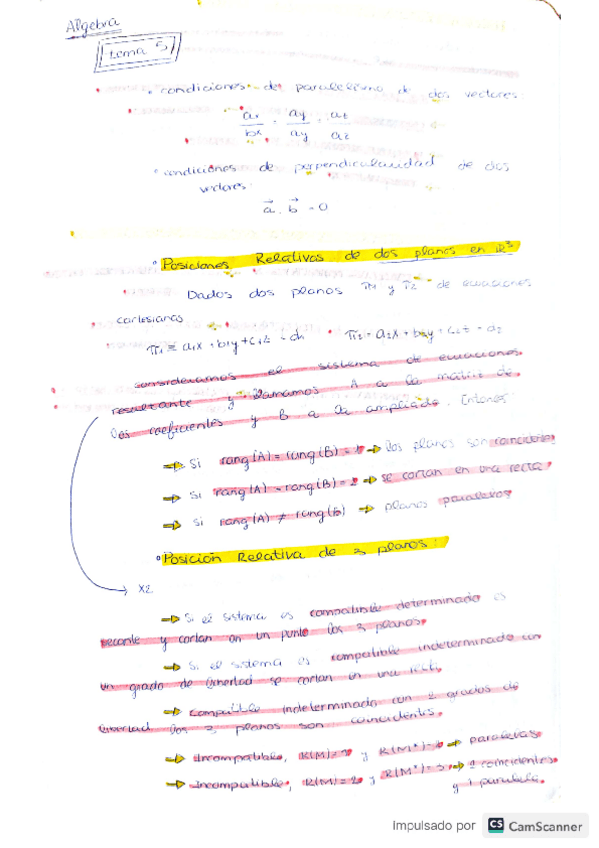 Algebra
tema 5
• condiciones de paralelismo de dos vectores:
ax/bx = ay/ay = az/az
• condiciones de perpendicularidad de dos
vectores:
a⃗ . b⃗ = 0
• Posiciones Relativas de dos planos en R³
Dados dos planos π1 y π2 de ecuaciones
cartesianas
π1 ≡ a1x + b1y + c1z = d1 π2 = a2x + b2y + c2z = d2
consideramos el sistema de ecuaciones
resultante y llamamos A a la matriz de
los coeficientes y B a la ampliada. Entonces
⇒ Si rang(A) = rang(B) = 1 ⇒ los planos son coincide
⇒ Si rang(A) = rang(B) = 2 ⇒ se cortan en una recta
⇒ Si rang(A) ≠ rang(B) ⇒ planos paralelos
• Posición Relativa de 3 planos:
→ X2
⇒ Si el sistema es compatible determinado es
secante y cortan en un punto los 3 planos.
⇒ Si el sistema es compatible indeterminado con
un grado de libertad se cortan en una recta.
⇒ compatible indeterminado con 2 grados de
libertad los 3 planos son coincidentes.
⇒ Incompatible, R(M)=1 y R(M*)=2 ⇒ paralelas
⇒ Incompatible, R(M)=2 y R(M*)=3 ⇒ 2 coincidentes
y 1 paralelo.
Impulsado por CS CamScanner